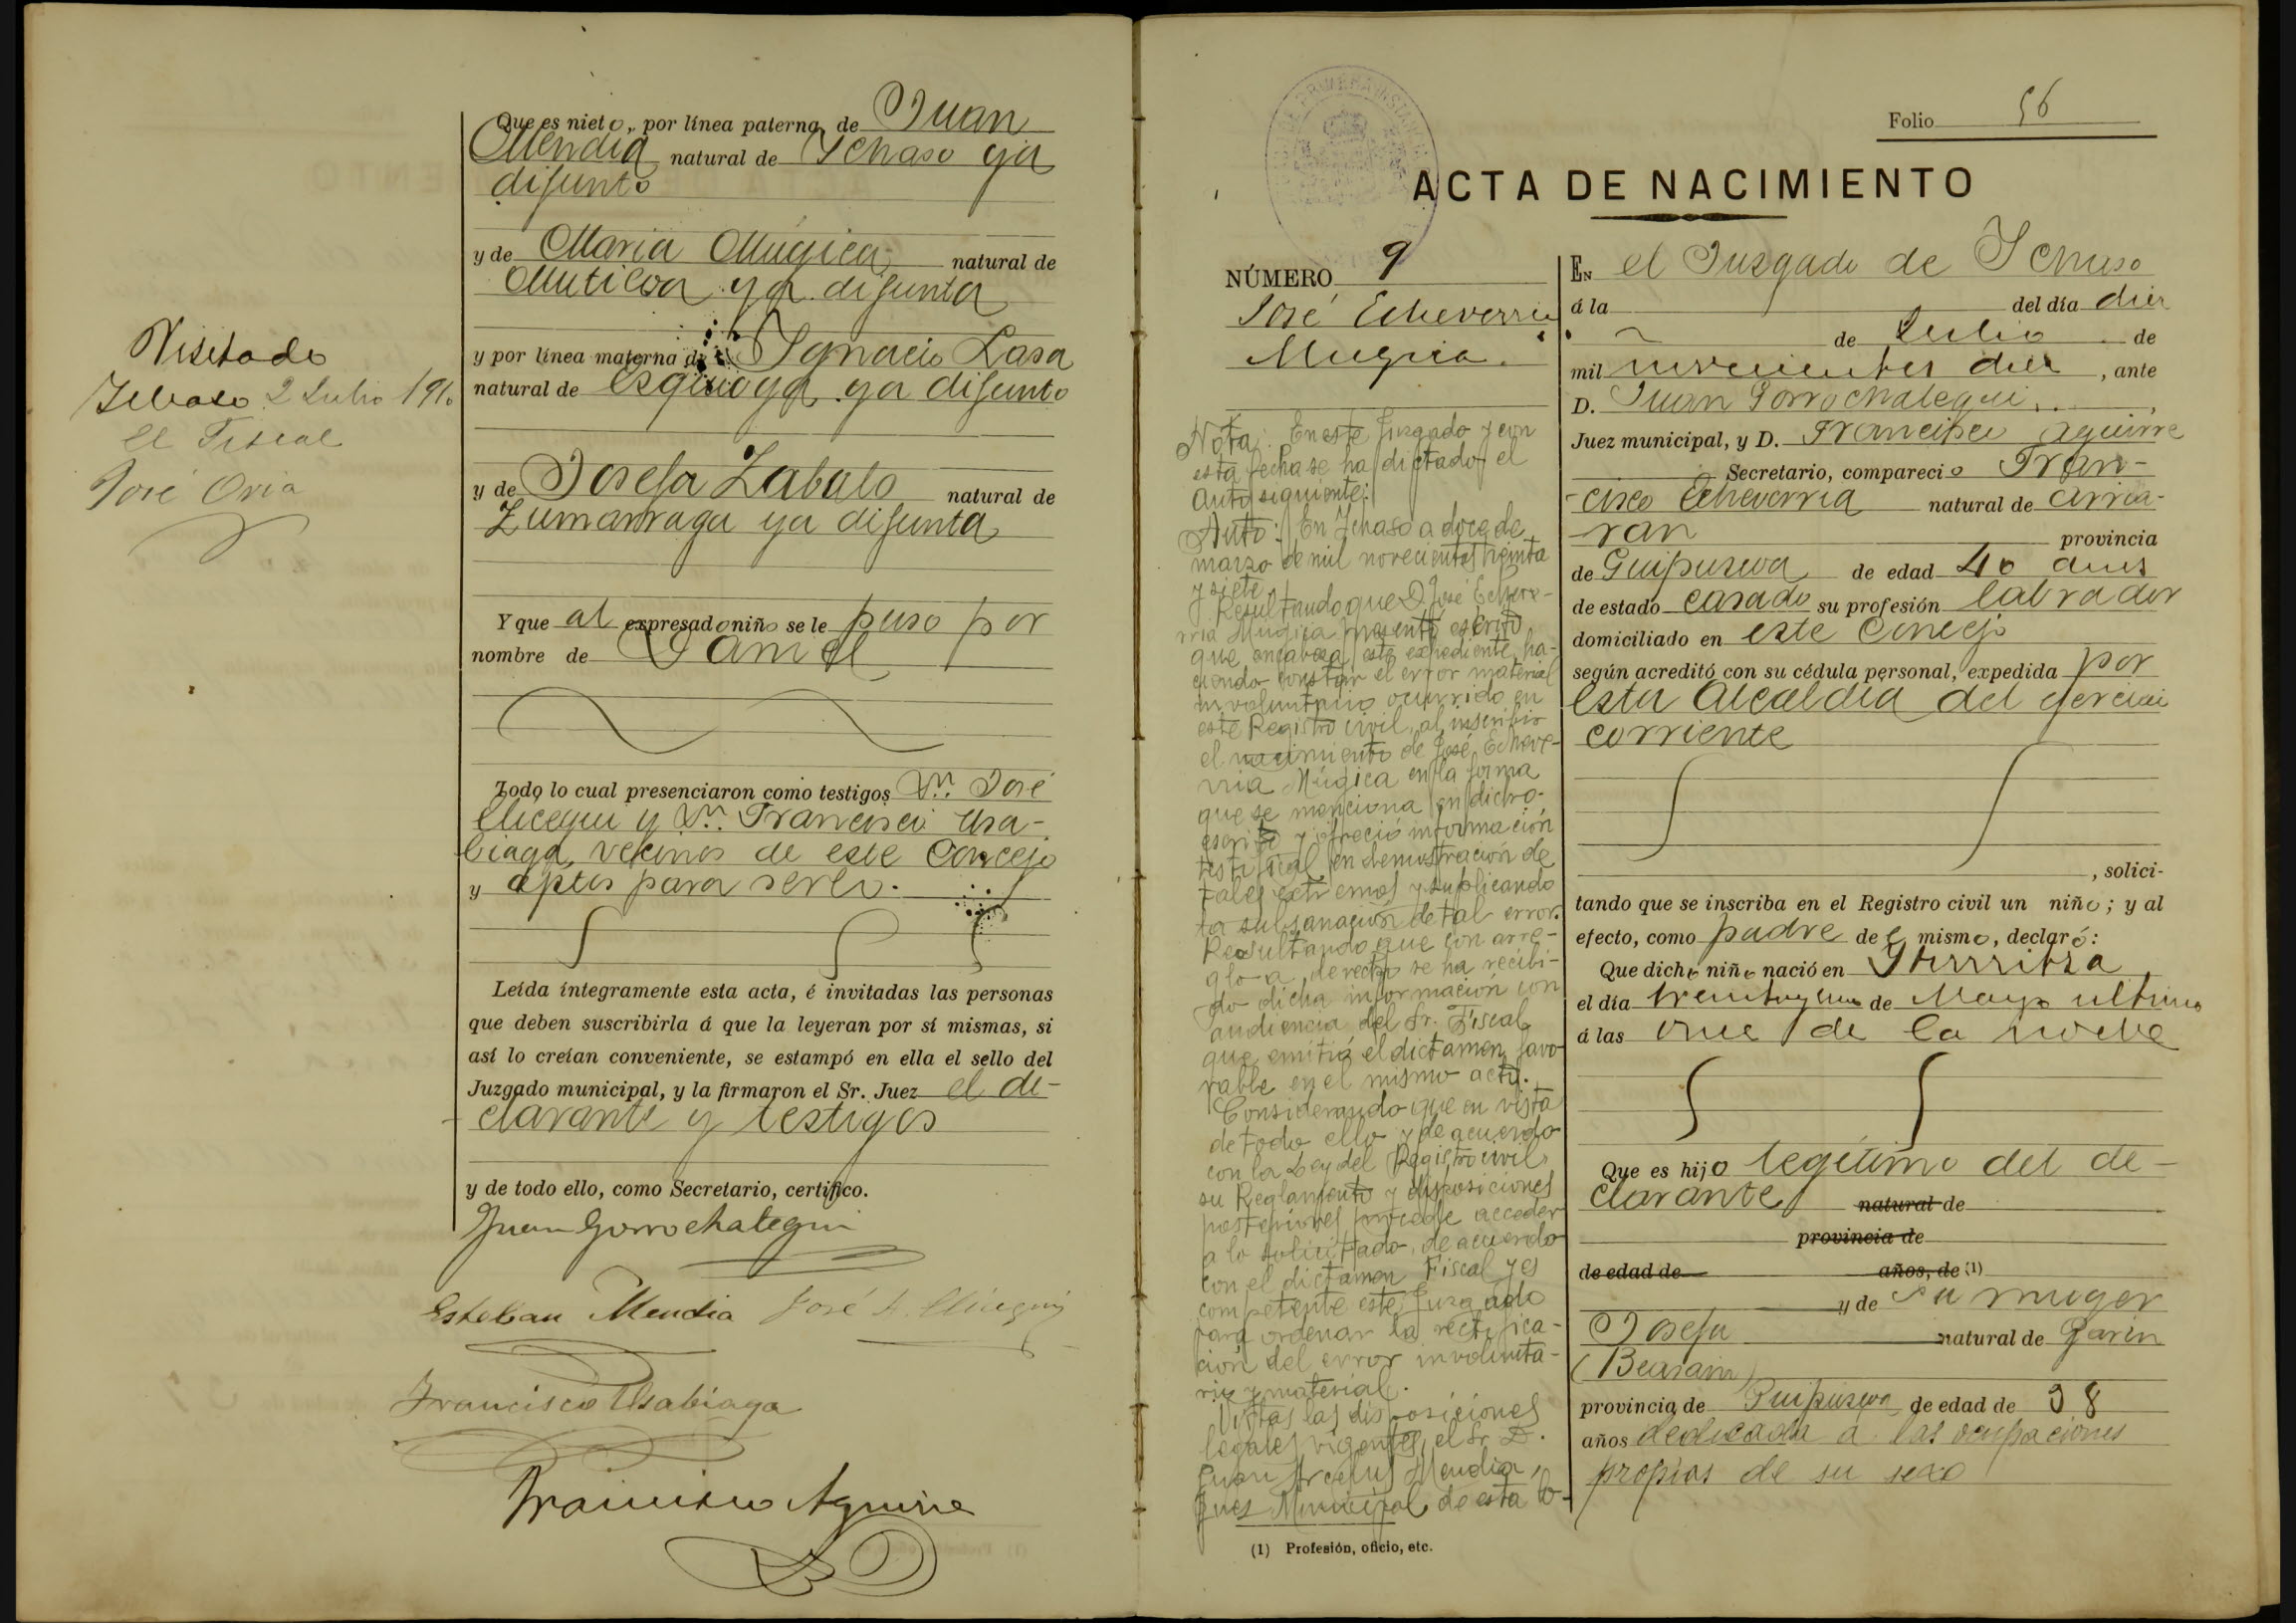 Que es nieto, por línea paterna, de Juan
Mendia natural de Ichaso ya
difunto
y de Maria Múgica natural de
Mutiloa ya difunta
y por línea materna de Ignacio Lasa
natural de Esquioga ya difunto
y de Josefa Zabalo natural de
Zumarraga ya difunta
Y que al expresado niño se le puso por
nombre de Daniel
Todo lo cual presenciaron como testigos Dn. José
Elicegui y Dn. Francisco Usa-
biaga, vecinos de este Concejo
y aptos para serlo.
Leída íntegramente esta acta, é invitadas las personas
que deben suscribirla á que la leyeran por sí mismas, si
así lo creían conveniente, se estampó en ella el sello del
Juzgado municipal, y la firmaron el Sr. Juez el de-
clarante y testigos
y de todo ello, como Secretario, certifico.
Juan Gorrochategui
Esteban Mendia José A. Elicegui
Francisco Usabiaga
Francisco Aguirre
Visitado
Ichaso 2 Julio 1910
El Fiscal
José Oria
Folio 56
ACTA DE NACIMIENTO
NÚMERO 9
José Echeverria
Mugica.
Nota: En este Juzgado y con
esta fecha se ha dictado el
auto siguiente:
Auto: En Ichaso a doce de
marzo de mil novecientos treinta
y siete.
Resultando que D. José Echeve-
rria Mugica presentó escrito
que encabeza este expediente, ha-
ciendo constar el error material
involuntario ocurrido en
este Registro civil, al inscribir
el nacimiento de José Echeve-
rria Múgica en la forma
que se menciona en dicho
escrito y ofreció información
testifical en demostración de
tales extremos y suplicando
la subsanación de tal error.
Resultando que con arre-
glo a derecho se ha recibi-
do dicha información con
audiencia del Sr. Fiscal
que emitió el dictamen favo-
rable en el mismo acto.
Considerando que en vista
de todo ello y de acuerdo
con la Ley del Registro civil
su Reglamento y disposiciones
posteriores procede acceder
a lo solicitado, de acuerdo
con el dictamen Fiscal y es
competente este Juzgado
para ordenar la rectifica-
ción del error involunta-
rio y material.
Vistas las disposiciones
legales vigentes, el Sr. D.
Juan Arcelus Mendia,
Juez Municipal de esta lo-
(1) Profesión, oficio, etc.
EN el Juzgado de Ichaso
á la del día diez
de Julio de
mil novecientos diez, ante
D. Juan Gorrochategui,
Juez municipal, y D. Francisco Aguirre
Secretario, compareció Fran-
cisco Echeverria natural de Arria-
ran provincia
de Guipuzcoa de edad 40 años
de estado casado su profesión labrador
domiciliado en este Concejo
según acreditó con su cédula personal, expedida por
esta Alcaldia del ejercicio
corriente
, solici-
tando que se inscriba en el Registro civil un niño; y al
efecto, como padre del mismo, declaró:
Que dicho niño nació en
el día treinta y uno de Mayo ultimo
á las once de la noche
Que es hijo legitimo del de-
clarante natural de
provincia de
de edad de años, de (1)
y de su muger
Josefa natural de Garin
(Beasain)
provincia de Guipuzcoa de edad de 38
años dedicada a las ocupaciones
propias de su sexo